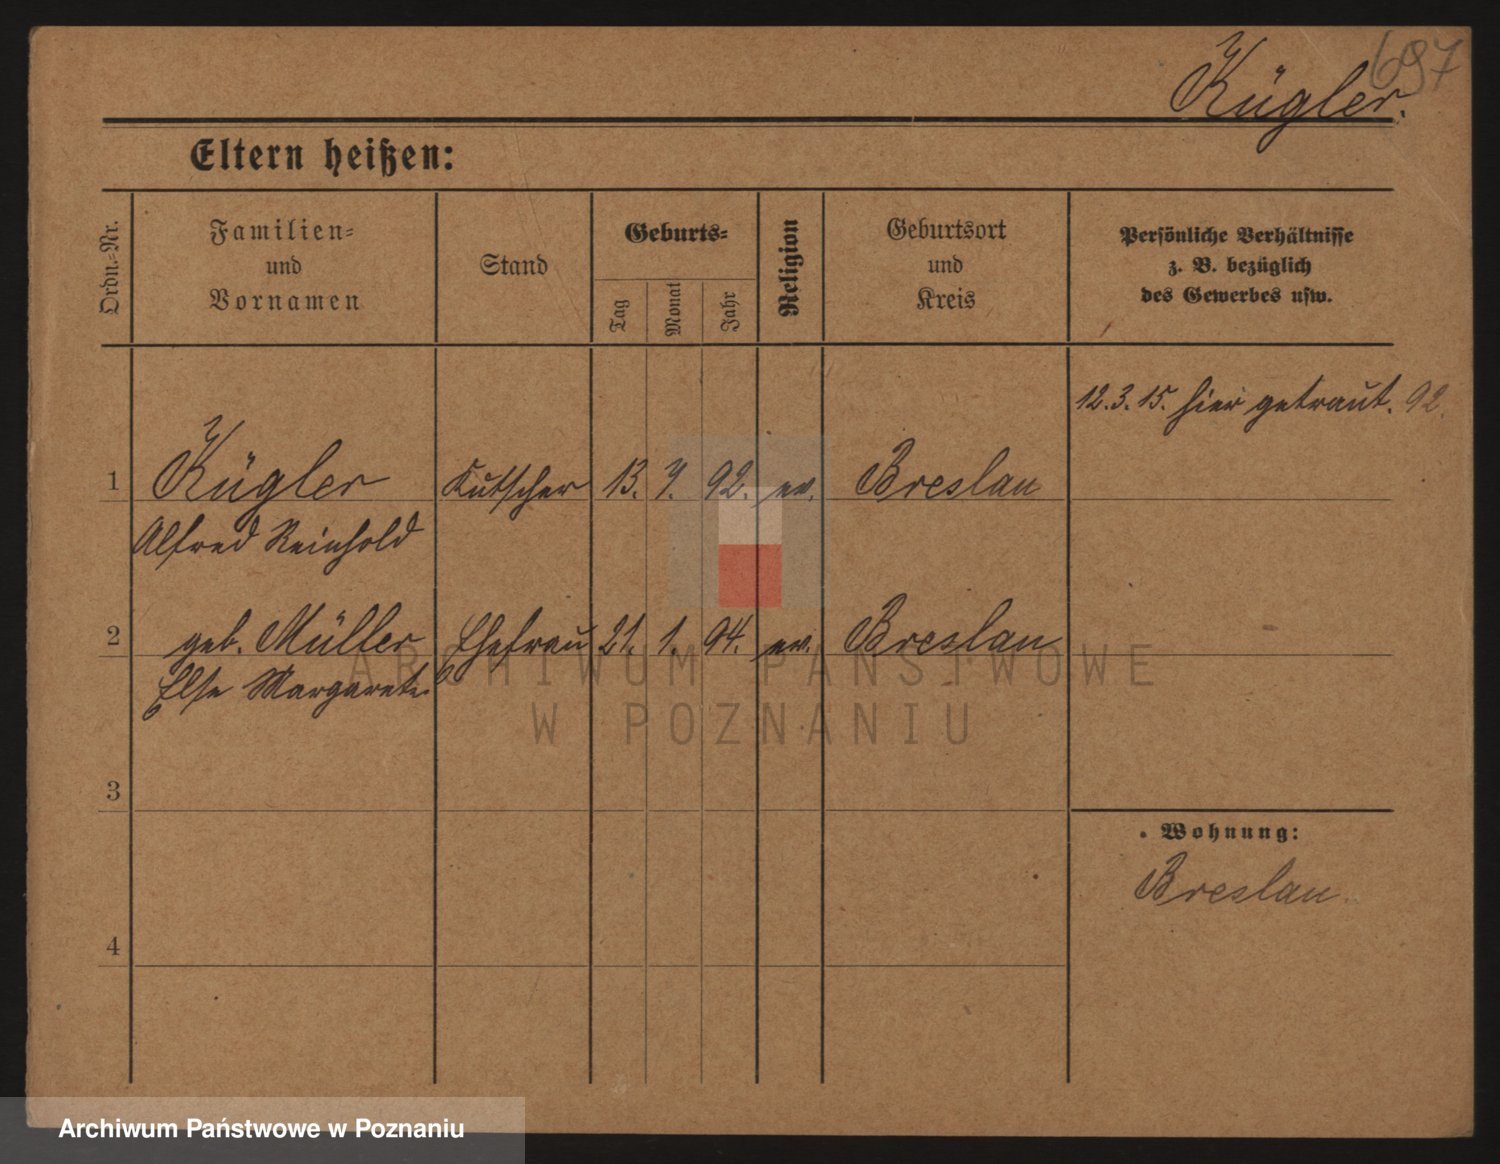 697
Kügler.
Eltern heißen:
Ordn.-Nr.
Familien-
und
Vornamen
Stand
Geburts-
Tag
Monat
Jahr
Religion
Geburtsort
und
Kreis
Persönliche Verhältnisse
z. B. bezüglich
des Gewerbes usw.
12.3.15. hier getraut. 92.
1 Kügler Kutscher 13. 7. 92. ev. Breslau
Alfred Reinhold
2 geb. Müller Ehefrau 21. 1. 94. ev. Breslau
Else Margarete
ARCHIWUM PAŃSTWOWE
W POZNANIU
3
Wohnung:
Breslau.
4
Archiwum Państwowe w Poznaniu